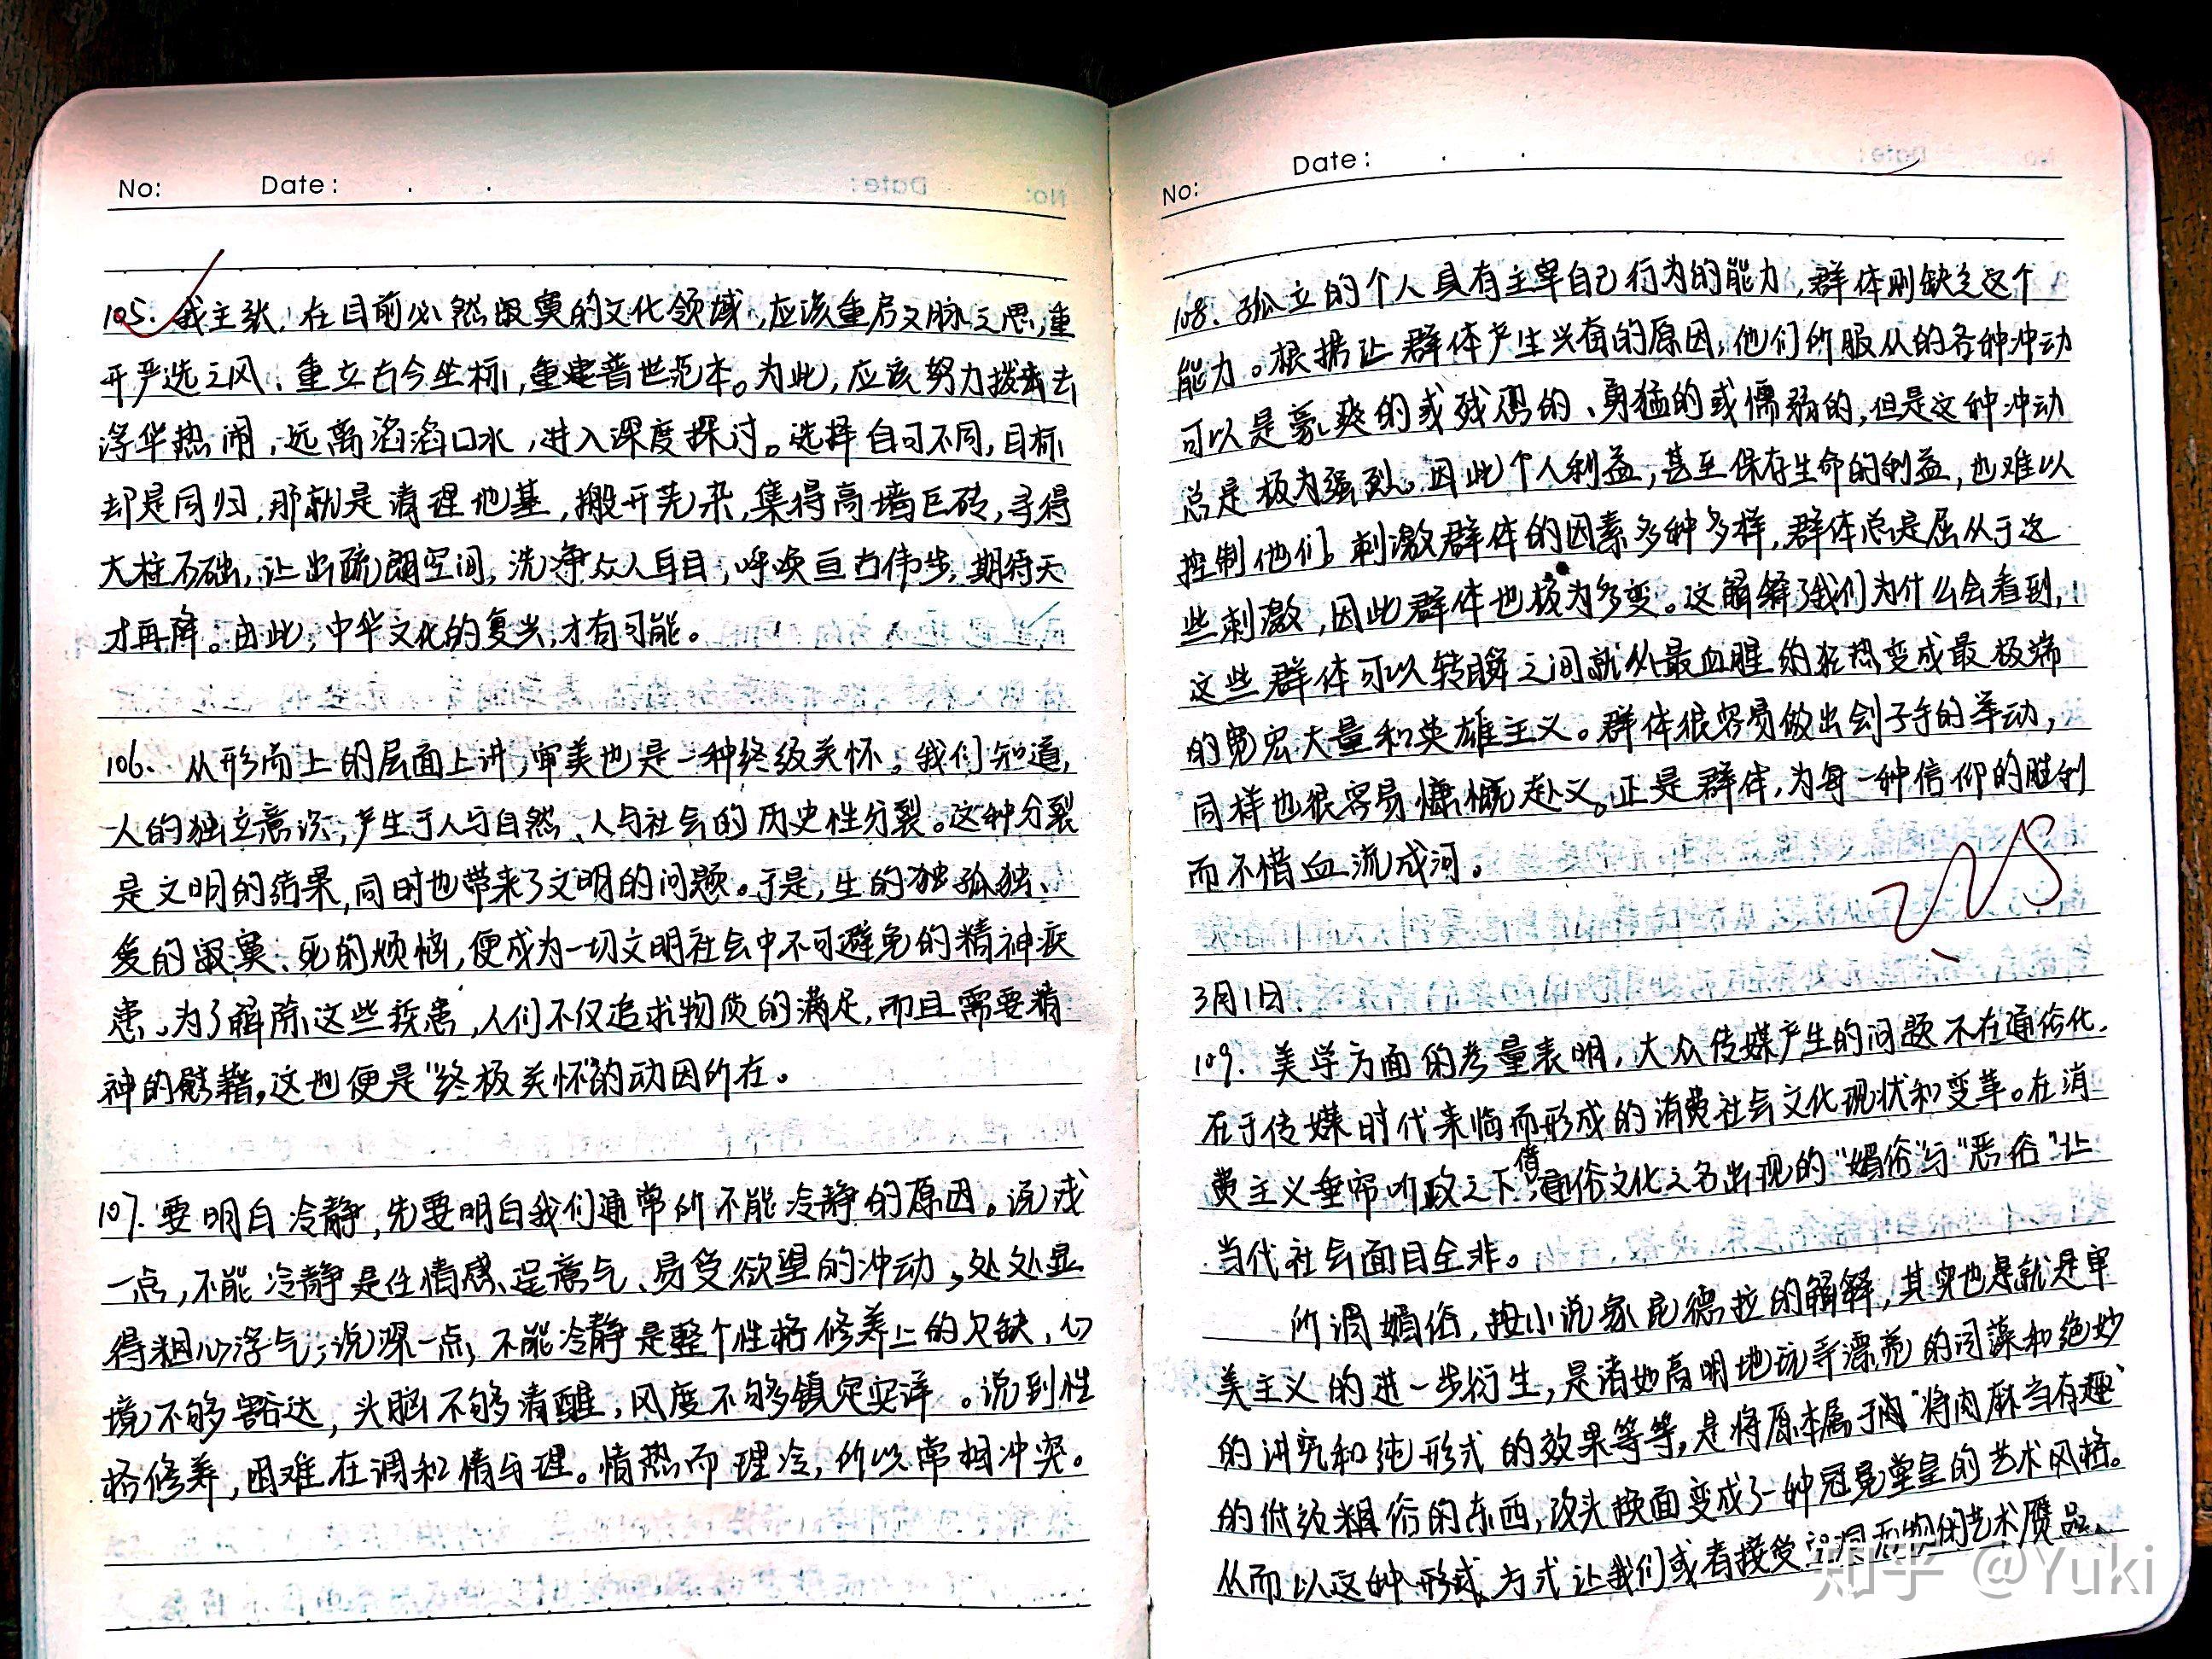 No: Date: . .
105. 我主张，在目前必然寂寞的文化领域，应该重启文脉之思，重
开严选之风，重立古今坐标，重建普世范本。为此，应该努力拨去
浮华热闹，远离滔滔口水，进入深度探讨。选择自可不同，目标
却是同归，那就是清理地基，搬开芜杂，集得高墙巨砖，寻得
大柱石础，让出疏朗空间，洗净众人耳目，呼唤亘古伟步，期待天
才再降。由此，中华文化的复兴，才有可能。
106. 从形而上的层面上讲，审美也是一种终级关怀。我们知道，
人的独立意识，产生于人与自然、人与社会的历史性分裂。这种分裂
是文明的结果，同时也带来了文明的问题。于是，生的独孤独、
爱的寂寞、死的烦恼，便成为一切文明社会中不可避免的精神疾
患。为了解除这些疾患，人们不仅追求物质的满足，而且需要精
神的慰藉。这也便是"终极关怀"的动因所在。
107. 要明白冷静，先要明白我们通常所不能冷静的原因。说浅
一点，不能冷静是任情感、逞意气、易受欲望的冲动，处处显
得粗心浮气；说深一点，不能冷静是整个性格修养上的欠缺，心
境不够豁达，头脑不够清醒，风度不够镇定安详。说到性
格修养，困难在调和情与理。情热而理冷，所以常相冲突。
No: Date: . .
108. 孤立的个人具有主宰自己行为的能力，群体则缺乏这个
能力。根据让群体产生兴奋的原因，他们所服从的各种冲动
可以是豪爽的或残忍的、勇猛的或懦弱的，但是这种冲动
总是极为强烈。因此个人利益，甚至保存生命的利益，也难以
控制他们。刺激群体的因素多种多样，群体总是屈从于这
些刺激，因此群体也极为多变。这解释了我们为什么会看到，
这些群体可以转瞬之间就从最血腥的狂热变成最极端
的宽宏大量和英雄主义。群体很容易做出刽子手的举动，
同样也很容易慷慨赴义。正是群体，为每一种信仰的胜利
而不惜血流成河。
3月1日.
109. 美学方面的考量表明，大众传媒产生的问题不在通俗化，
在于传媒时代来临而形成的消费社会文化现状和变革。在消
费主义垂帘听政之下，借通俗文化之名出现的"媚俗"与"恶俗"让
当代社会面目全非。
所谓媚俗，按小说家昆德拉的解释，其实也是就是审
美主义的进一步衍生，是诸如高明地玩弄漂亮的词藻和绝妙
的讲究和纯形式的效果等等，是将原本属于肉"将肉麻当有趣"
的低级粗俗的东西，改头换面变成了一种冠冕堂皇的艺术风格。
从而以这种形式、方式让我们或者接受空洞无物的艺术赝品、
知乎 @Yuki